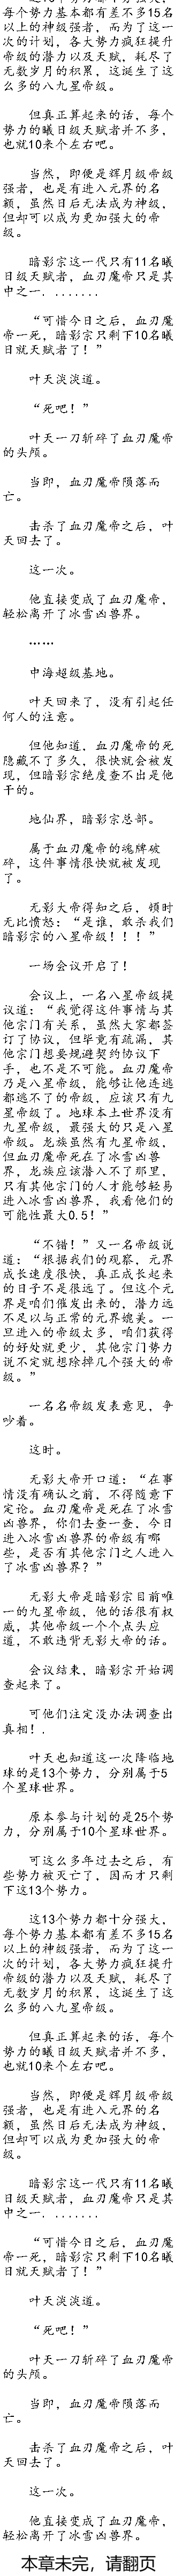 每个势力基本都有差不多15名
以上的神级强者，而为了这一
次的计划，各大势力疯狂提升
帝级的潜力以及天赋，耗尽了
无数岁月的积累，这诞生了这
么多的八九星帝级。
但真正算起来的话，每个
势力的曦日级天赋者并不多，
也就10来个左右吧。
当然，即便是辉月级帝级
强者，也是有进入无界的名
额，虽然日后无法成为神级，
但却可以成为更加强大的帝
级。
暗影宗这一代只有11名曦
日级天赋者，血刃魔帝只是其
中之一．.......
“可惜今日之后，血刃魔
帝一死，暗影宗只剩下10名曦
日就天赋者了！”
叶天淡淡道。
“死吧！”
叶天一刀斩碎了血刃魔帝
的头颅。
当即，血刃魔帝陨落而
亡。
击杀了血刃魔帝之后，叶
天回去了。
这一次。
他直接变成了血刃魔帝，
轻松离开了冰雪凶兽界。
……
中海超级基地。
叶天回来了，没有引起任
何人的注意。
但他知道，血刃魔帝的死
隐藏不了多久，很快就会被发
现，但暗影宗绝度查不出是他
干的。
地仙界，暗影宗总部。
属于血刃魔帝的魂牌破
碎，这件事情很快就被发现
了。
无影大帝得知之后，顿时
无比愤怒：“是谁，敢杀我们
暗影宗的八星帝级！！！”
一场会议开启了！
会议上，一名八星帝级提
议道：“我觉得这件事情与其
他宗门有关系，虽然大家都签
订了协议，但毕竟有疏漏，其
他宗门想要规避契约协议下
手，也不是不可能。血刃魔帝
乃是八星帝级，能够让他连逃
都逃不了的帝级，应该只有九
星帝级了。地球本土世界没有
九星帝级，最强大的只是八星
帝级。龙族虽然有九星帝级，
但血刃魔帝死在了冰雪凶兽
界，龙族应该潜入不了那里，
只有其他宗门的人才能够轻易
进入冰雪凶兽界，我看他们的
可能性最大0.5！”
“不错！”又一名帝级说
道：“根据我们的观察，无界
成长速度很快，真正成长起来
的日子不是很远了。但这个无
界是咱们催发出来的，潜力远
不足以与正常的无界媲美。一
旦进入的帝级太多，咱们获得
的好处就更少，其他宗门势力
说不定就想除掉几个强大的帝
级。”
一名名帝级发表意见，争
吵着。
这时。
无影大帝开口道：“在事
情没有确认之前，不得随意下
定论。血刃魔帝是死在了冰雪
凶兽界，你们去查一查，今日
进入冰雪凶兽界的帝级有哪
些，是否有其他宗门之人进入
了冰雪凶兽界？”
无影大帝是暗影宗目前唯
一的九星帝级，他的话很有权
威，其他帝级一个个点头应
道，不敢违背无影大帝的话。
会议结束，暗影宗开始调
查起来了。
可他们注定没办法调查出
真相！．
叶天也知道这一次降临地
球的是13个势力，分别属于5
个星球世界。
原本参与计划的是25个势
力，分别属于10个星球世界。
可这么多年过去之后，有
些势力被灭亡了，因而才只剩
下这13个势力。
这13个势力都十分强大，
每个势力基本都有差不多15名
以上的神级强者，而为了这一
次的计划，各大势力疯狂提升
帝级的潜力以及天赋，耗尽了
无数岁月的积累，这诞生了这
么多的八九星帝级。
但真正算起来的话，每个
势力的曦日级天赋者并不多，
也就10来个左右吧。
当然，即便是辉月级帝级
强者，也是有进入无界的名
额，虽然日后无法成为神级，
但却可以成为更加强大的帝
级。
暗影宗这一代只有11名曦
日级天赋者，血刃魔帝只是其
中之一．.......
“可惜今日之后，血刃魔
帝一死，暗影宗只剩下10名曦
日就天赋者了！”
叶天淡淡道。
“死吧！”
叶天一刀斩碎了血刃魔帝
的头颅。
当即，血刃魔帝陨落而
亡。
击杀了血刃魔帝之后，叶
天回去了。
这一次。
他直接变成了血刃魔帝，
轻松离开了冰雪凶兽界。
本章未完，请翻页